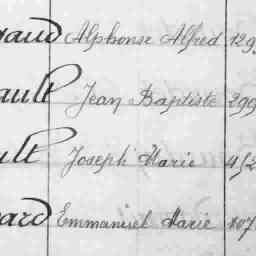 gaud Alphonse Alfred 129
ault Jean Baptiste 299
ult Joseph Marie 452
ard Emmanuel Marie 107